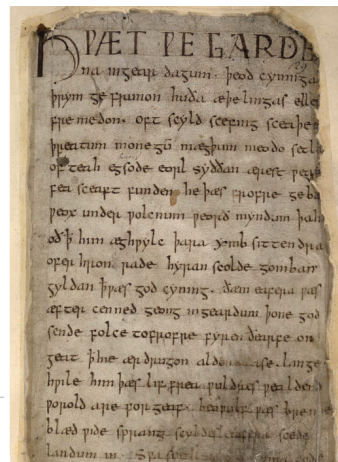 HǷÆT ǷE GARDE
na ingear dagum. þeod cyninga
þrym ge frunon huða æþelingas elle
fremedon. oft scyld scefing sceaþe
þreatum monegū mægþum meodo setla
of teah egsode eorl syððan ærest ƿear
fea sceaft funden he þæs frofre geba
ƿeox under ƿolcnum ƿeorð myndum þah
oð ꝥ him æghƿylc þara ymb sittendra
ofer hron rade hyran scolde gomban
gyldan þæt ƿæs god cyning. ðæm eafera ƿæs
æfter cenned geong ingeardum þone god
sende folce tofrofre fyren ðearfe on
geat ꝥ hie ær drugon aldor ase. lange
hƿile him þæs lif frea ƿuldres ƿealdend
ƿorold are forgeaf. beoƿulf ƿæs breme
blæd ƿide sprang scyldes eafera scede
landum in.